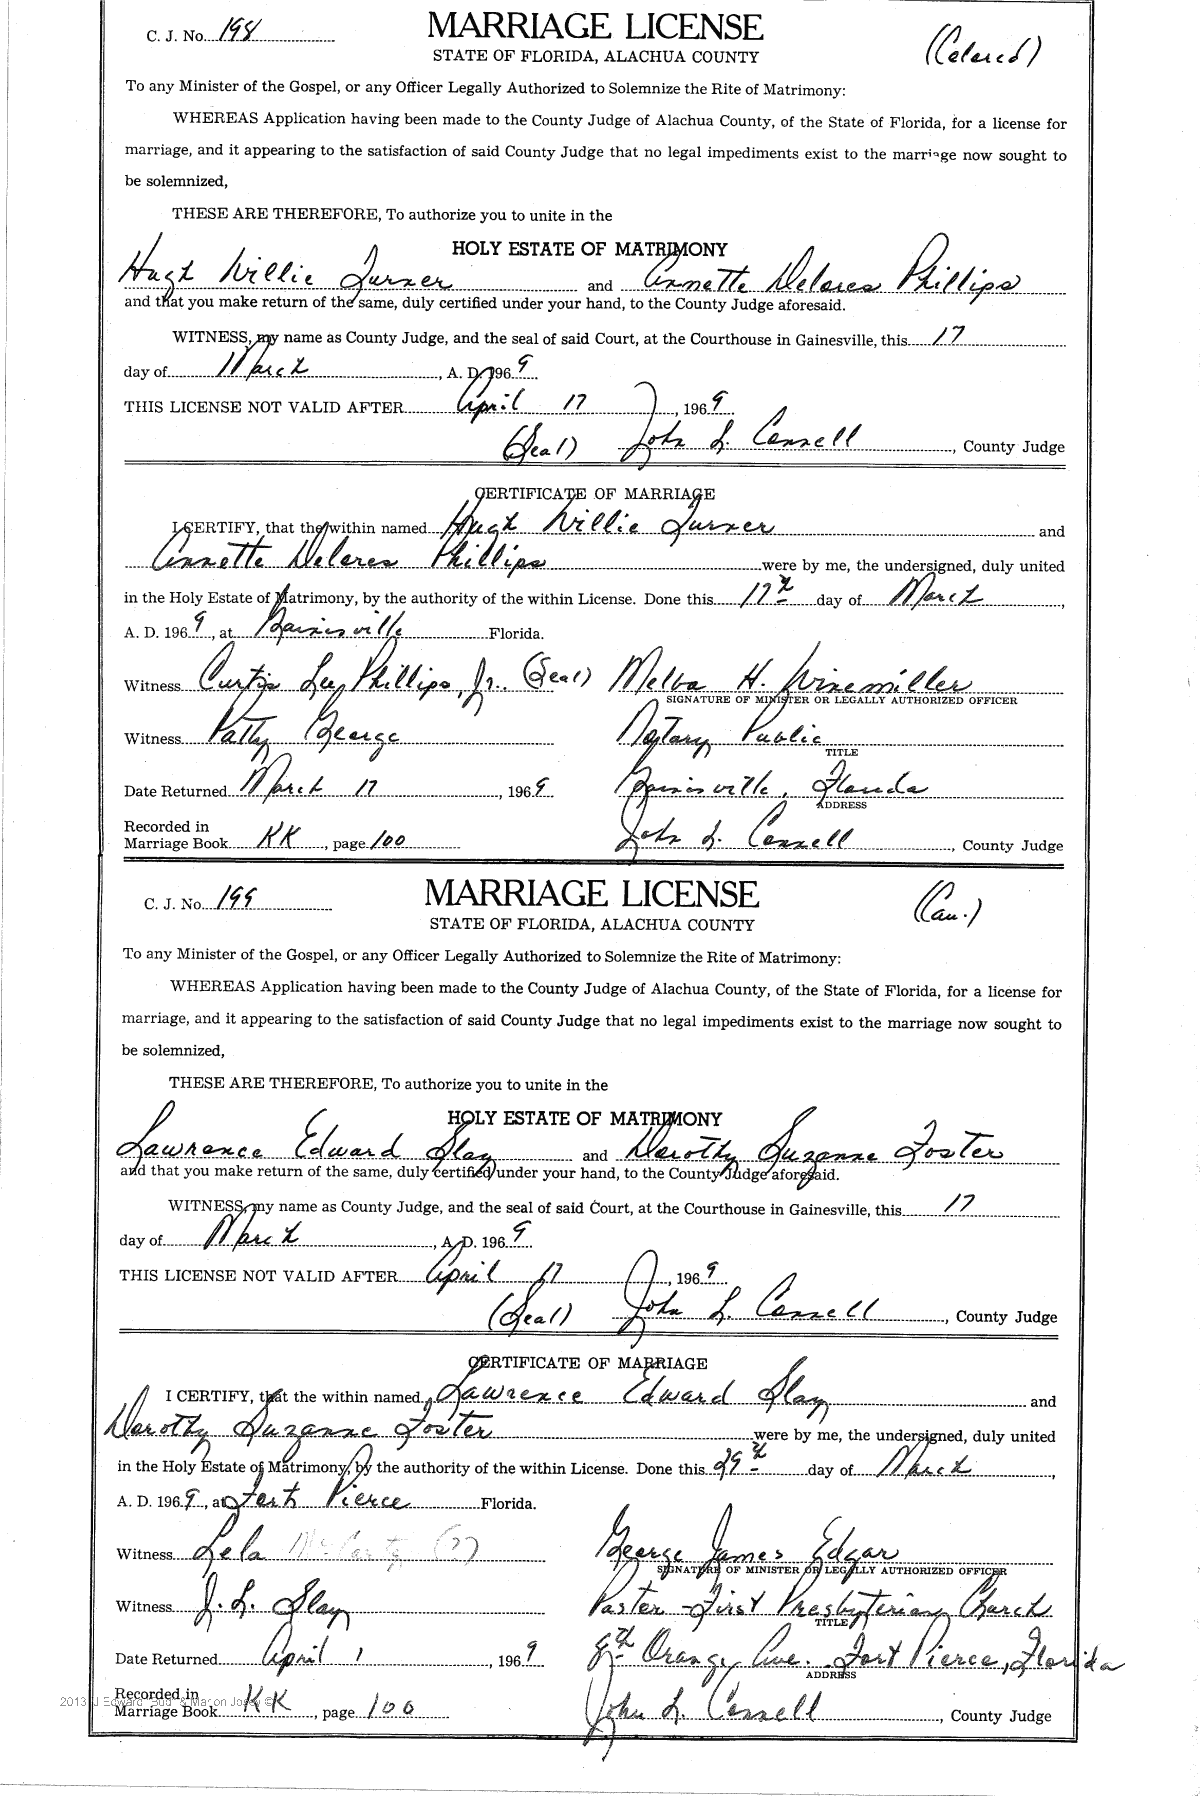 C. J. No. 198
MARRIAGE LICENSE
(Colored)
STATE OF FLORIDA, ALACHUA COUNTY
To any Minister of the Gospel, or any Officer Legally Authorized to Solemnize the Rite of Matrimony:
WHEREAS Application having been made to the County Judge of Alachua County, of the State of Florida, for a license for
marriage, and it appearing to the satisfaction of said County Judge that no legal impediments exist to the marriage now sought to
be solemnized,
THESE ARE THEREFORE, To authorize you to unite in the
HOLY ESTATE OF MATRIMONY
Hugh Willie Turner and Annette Delores Phillips
and that you make return of the same, duly certified under your hand, to the County Judge aforesaid.
WITNESS, my name as County Judge, and the seal of said Court, at the Courthouse in Gainesville, this 17
day of March, A. D. 1969
THIS LICENSE NOT VALID AFTER April 17, 1969
(Seal) John L. Connell, County Judge
CERTIFICATE OF MARRIAGE
I CERTIFY, that the within named Hugh Willie Turner and
Annette Delores Phillips were by me, the undersigned, duly united
in the Holy Estate of Matrimony, by the authority of the within License. Done this 17th day of March,
A. D. 1969, at Gainesville Florida.
Witness Curtis Lee Phillips, Jr. (Seal) Melba H. Winemiller
SIGNATURE OF MINISTER OR LEGALLY AUTHORIZED OFFICER
Witness Patty George Notary Public
TITLE
Date Returned March 17, 1969 Gainesville, Florida
ADDRESS
Recorded in
Marriage Book KK, page 100 John L. Connell, County Judge
C. J. No. 199
MARRIAGE LICENSE
(Cau.)
STATE OF FLORIDA, ALACHUA COUNTY
To any Minister of the Gospel, or any Officer Legally Authorized to Solemnize the Rite of Matrimony:
WHEREAS Application having been made to the County Judge of Alachua County, of the State of Florida, for a license for
marriage, and it appearing to the satisfaction of said County Judge that no legal impediments exist to the marriage now sought to
be solemnized,
THESE ARE THEREFORE, To authorize you to unite in the
HOLY ESTATE OF MATRIMONY
Lawrence Edward Slay and Dorothy Suzanne Foster
and that you make return of the same, duly certified under your hand, to the County Judge aforesaid.
WITNESS, my name as County Judge, and the seal of said Court, at the Courthouse in Gainesville, this 17
day of March, A. D. 1969
THIS LICENSE NOT VALID AFTER April 17, 1969
(Seal) John L. Connell, County Judge
CERTIFICATE OF MARRIAGE
I CERTIFY, that the within named Lawrence Edward Slay and
Dorothy Suzanne Foster were by me, the undersigned, duly united
in the Holy Estate of Matrimony, by the authority of the within License. Done this 29th day of March,
A. D. 1969, at Fort Pierce Florida.
Witness Lela McCarty (?) George James Edgar
SIGNATURE OF MINISTER OR LEGALLY AUTHORIZED OFFICER
Witness J. L. Slay Pastor - First Presbyterian Church
TITLE
Date Returned April 1, 1969 8th Orange Ave. Fort Pierce, Florida
ADDRESS
Recorded in
Marriage Book KK, page 100 John L. Connell, County Judge
2013 J Edward "Sud" & Marion Josey ©